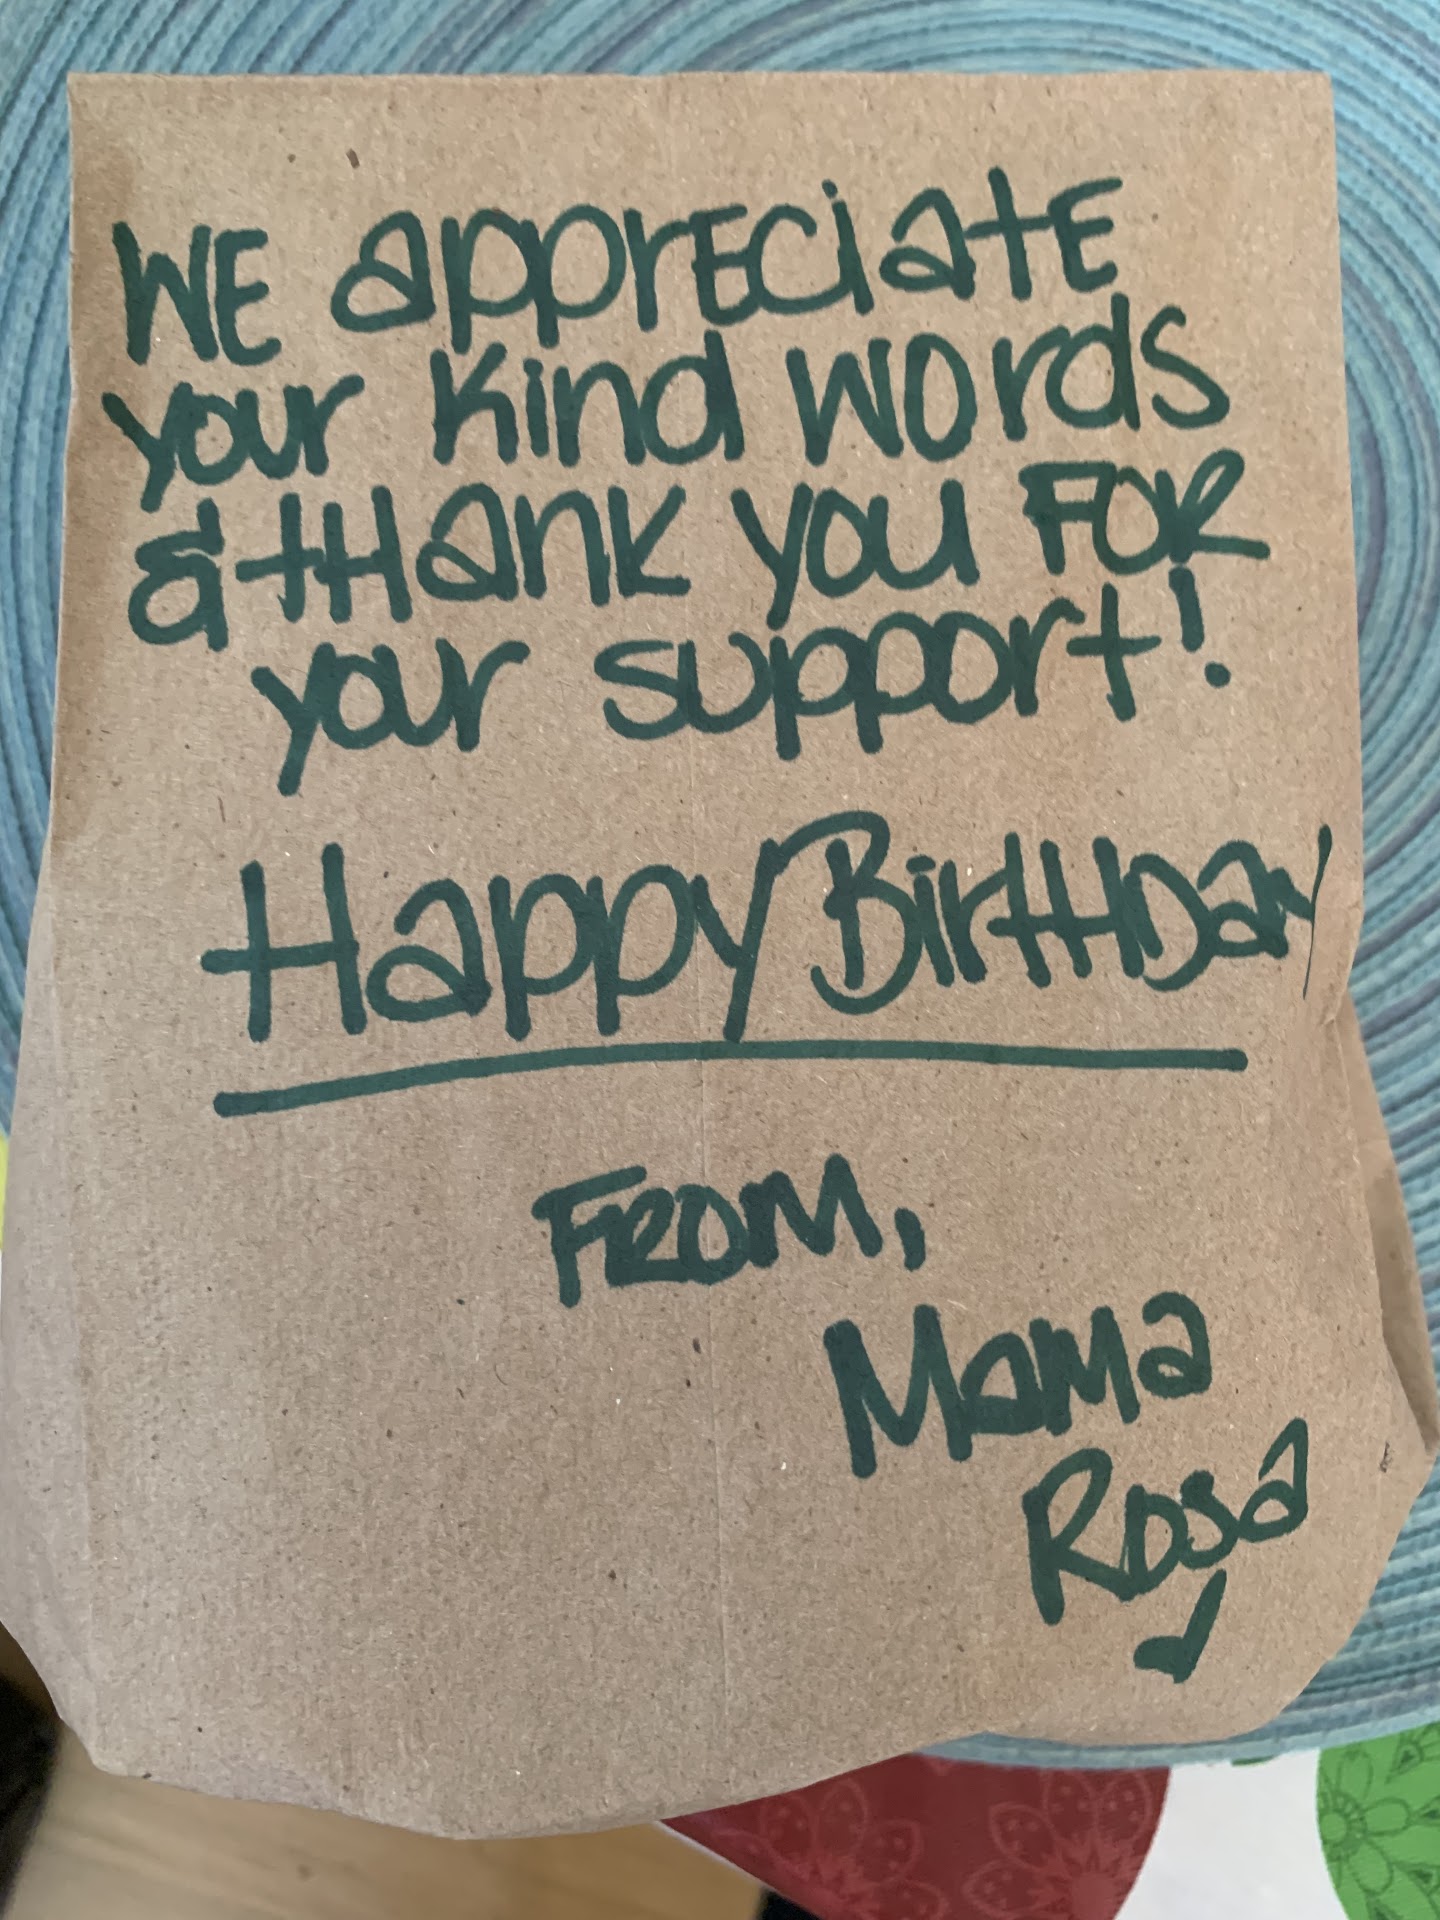 WE appreciate
your Kind words
& thank you FOR
your support!
Happy Birthday
From,
Mama
Rosa